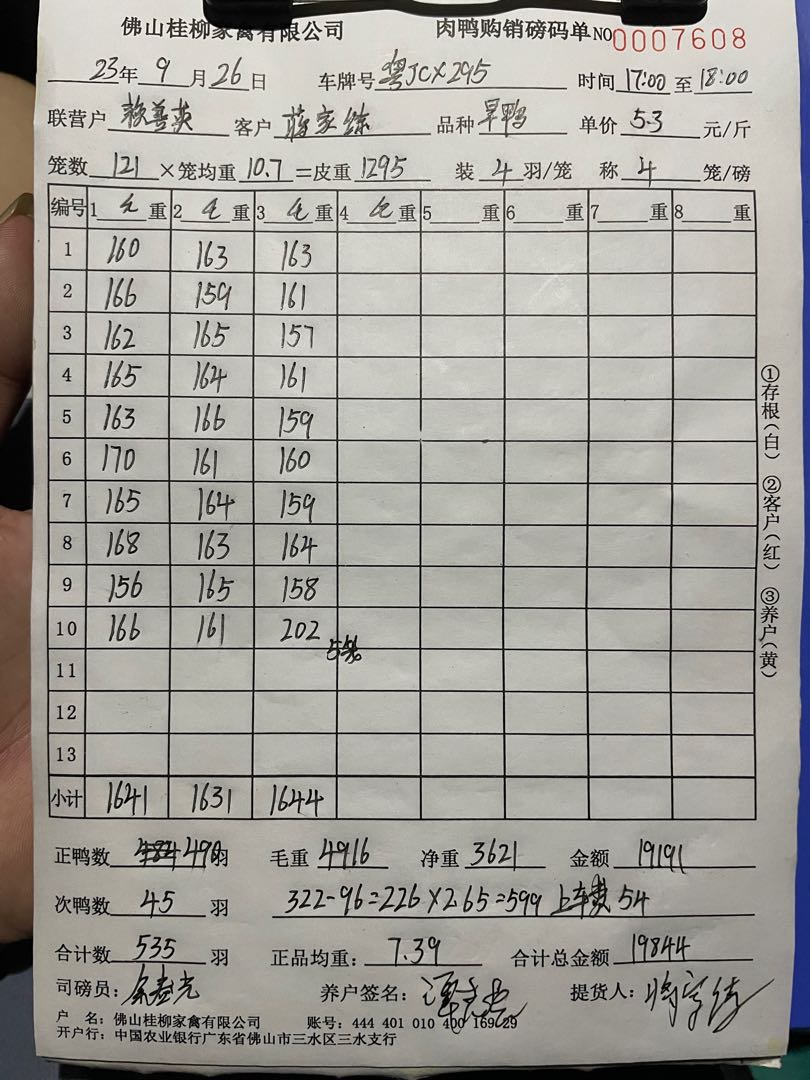 佛山桂柳家禽有限公司 肉鸭购销磅码单 NO 0007608
23年 9 月 26 日 车牌号 粤JCX295 时间 17:00 至 18:00
联营户 赖善英 客户 蒋家练 品种 旱鸭 单价 5.3 元/斤
笼数 121 ×笼均重 10.7 =皮重 1295 装 4 羽/笼 称 4 笼/磅
编号 1 毛 重 2 毛 重 3 毛 重 4 毛 重 5 重 6 重 7 重 8 重
1 160 163 163
2 166 159 161
3 162 165 157
4 165 164 161
5 163 166 159
6 170 161 160
7 165 164 159
8 168 163 164
9 156 165 158
10 166 161 202
5笼
11
12
13
小计 1641 1631 1644
①存根(白) ②客户(红) ③养户(黄)
正鸭数 490 羽 毛重 4916 净重 3621 金额 19191
次鸭数 45 羽 322-96=226×2.65=599 上车费 54
合计数 535 羽 正品均重: 7.39 合计总金额 19844
司磅员: 养户签名: 提货人:
户 名: 佛山桂柳家禽有限公司 账号: 444 401 010 400 169 29
开户行: 中国农业银行广东省佛山市三水区三水支行